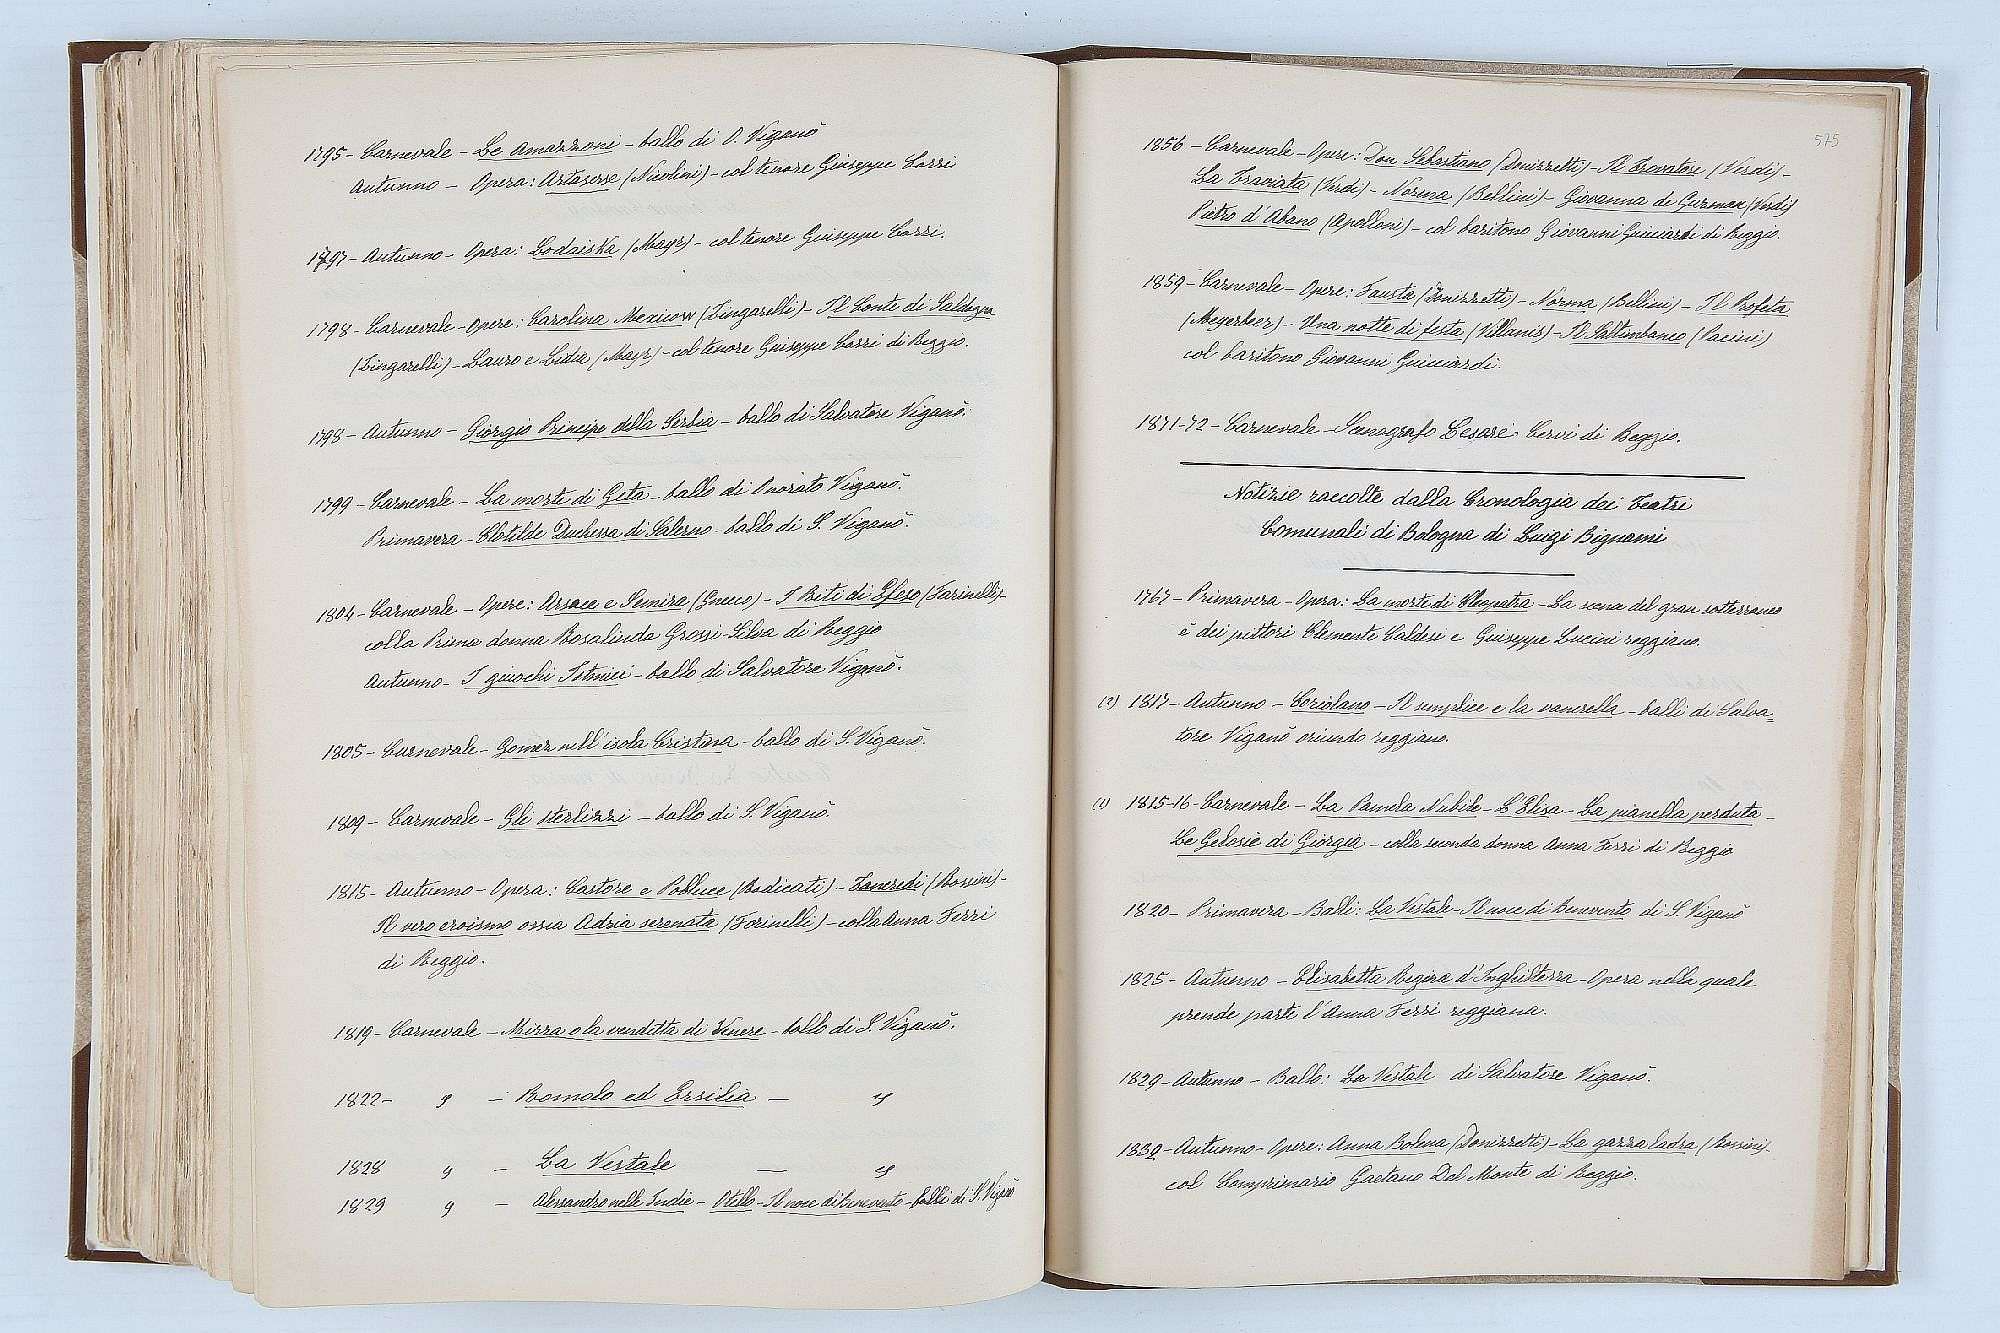 1795 - Carnevale - Le Amazzoni - ballo di O. Viganò
Autunno - Opera: Artaserse (Nicolini) - col tenore Giuseppe Corri
1797 - Autunno - Opera: Lodaiska (Mayr) - col tenore Giuseppe Corri.
1798 - Carnevale - Opere: Carolina Mexicow (Zingarelli) - Il Conte di Saldagna
(Zingarelli) - Lauso e Lidia (Mayr) - col tenore Giuseppe Corri di Reggio.
1798 - Autunno - Giorgio Principe della Serbia - ballo di Salvatore Viganò.
1799 - Carnevale - La morte di Geta - ballo di Onorato Viganò.
Primavera - Clotilde Duchessa di Salerno - ballo di S. Viganò.
1804 - Carnevale - Opere: Arsace e Semira (Gnecco) - I Riti di Efeso (Farinelli) -
colla Prima donna Rosalinda Grossi-Silva di Reggio
Autunno - I giuochi Istmici - ballo di Salvatore Viganò.
1805 - Carnevale - Gomez nell'isola Cristina - ballo di S. Viganò.
1809 - Carnevale - Gli sterlizzi - ballo di S. Viganò.
1815 - Autunno - Opera: Castore e Polluce (Radicati) - Tancredi (Rossini) -
Il vero eroismo ossia Adria serenata (Farinelli) - colla Anna Ferri
di Reggio.
1819 - Carnevale - Mirra o la vendetta di Venere - ballo di S. Viganò.
1822 - " - Romolo ed Ersilia - "
1828 " - La Vestale - "
1829 " - Alessandro nelle Indie - Otello - Il noce di Benevento - balli di S. Viganò
575
1856 - Carnevale - Opere: Don Sebastiano (Donizzetti) - Il Trovatore (Verdi) -
La Traviata (Verdi) - Norma (Bellini) - Giovanna de Guzman (Verdi)
Pietro d'Abano (Apolloni) - col baritono Giovanni Guicciardi di Reggio.
1859 - Carnevale - Opere: Fausta (Donizzetti) - Norma (Bellini) - Il Profeta
(Meyerbeer) - Una notte di festa (Villanis) - Il Saltimbanco (Pacini)
col baritono Giovanni Guicciardi.
1871-72 - Carnevale - Scenografo Cesare Cervi di Reggio.
Notizie raccolte dalla Cronologia dei Teatri
Comunali di Bologna di Luigi Bignami
1767 - Primavera - Opera: La morte di Cleopatra - La scena del gran sotterraneo
è dei pittori Clemente Valdesi e Giuseppe Lucini reggiano.
(2) 1817 - Autunno - Coriolano - Il semplice e la vanerella - balli di Salva=
tore Viganò oriundo reggiano.
(1) 1815-16 - Carnevale - La Pamela Nubile - L'Elisa - La pianella perduta -
Le Gelosie di Giorgio - colla seconda donna Anna Ferri di Reggio
1820 - Primavera - Balli: La Vestale - Il noce di Benevento di S. Viganò
1825 - Autunno - Elisabetta Regina d'Inghilterra - Opera nella quale
prende parte l'Anna Ferri reggiana.
1829 - Autunno - Ballo: La Vestale di Salvatore Viganò.
1832 - Autunno - Opere: Anna Bolena (Donizzetti) - La gazza ladra (Rossini) -
col Comprimario Gaetano Dal Monte di Reggio.